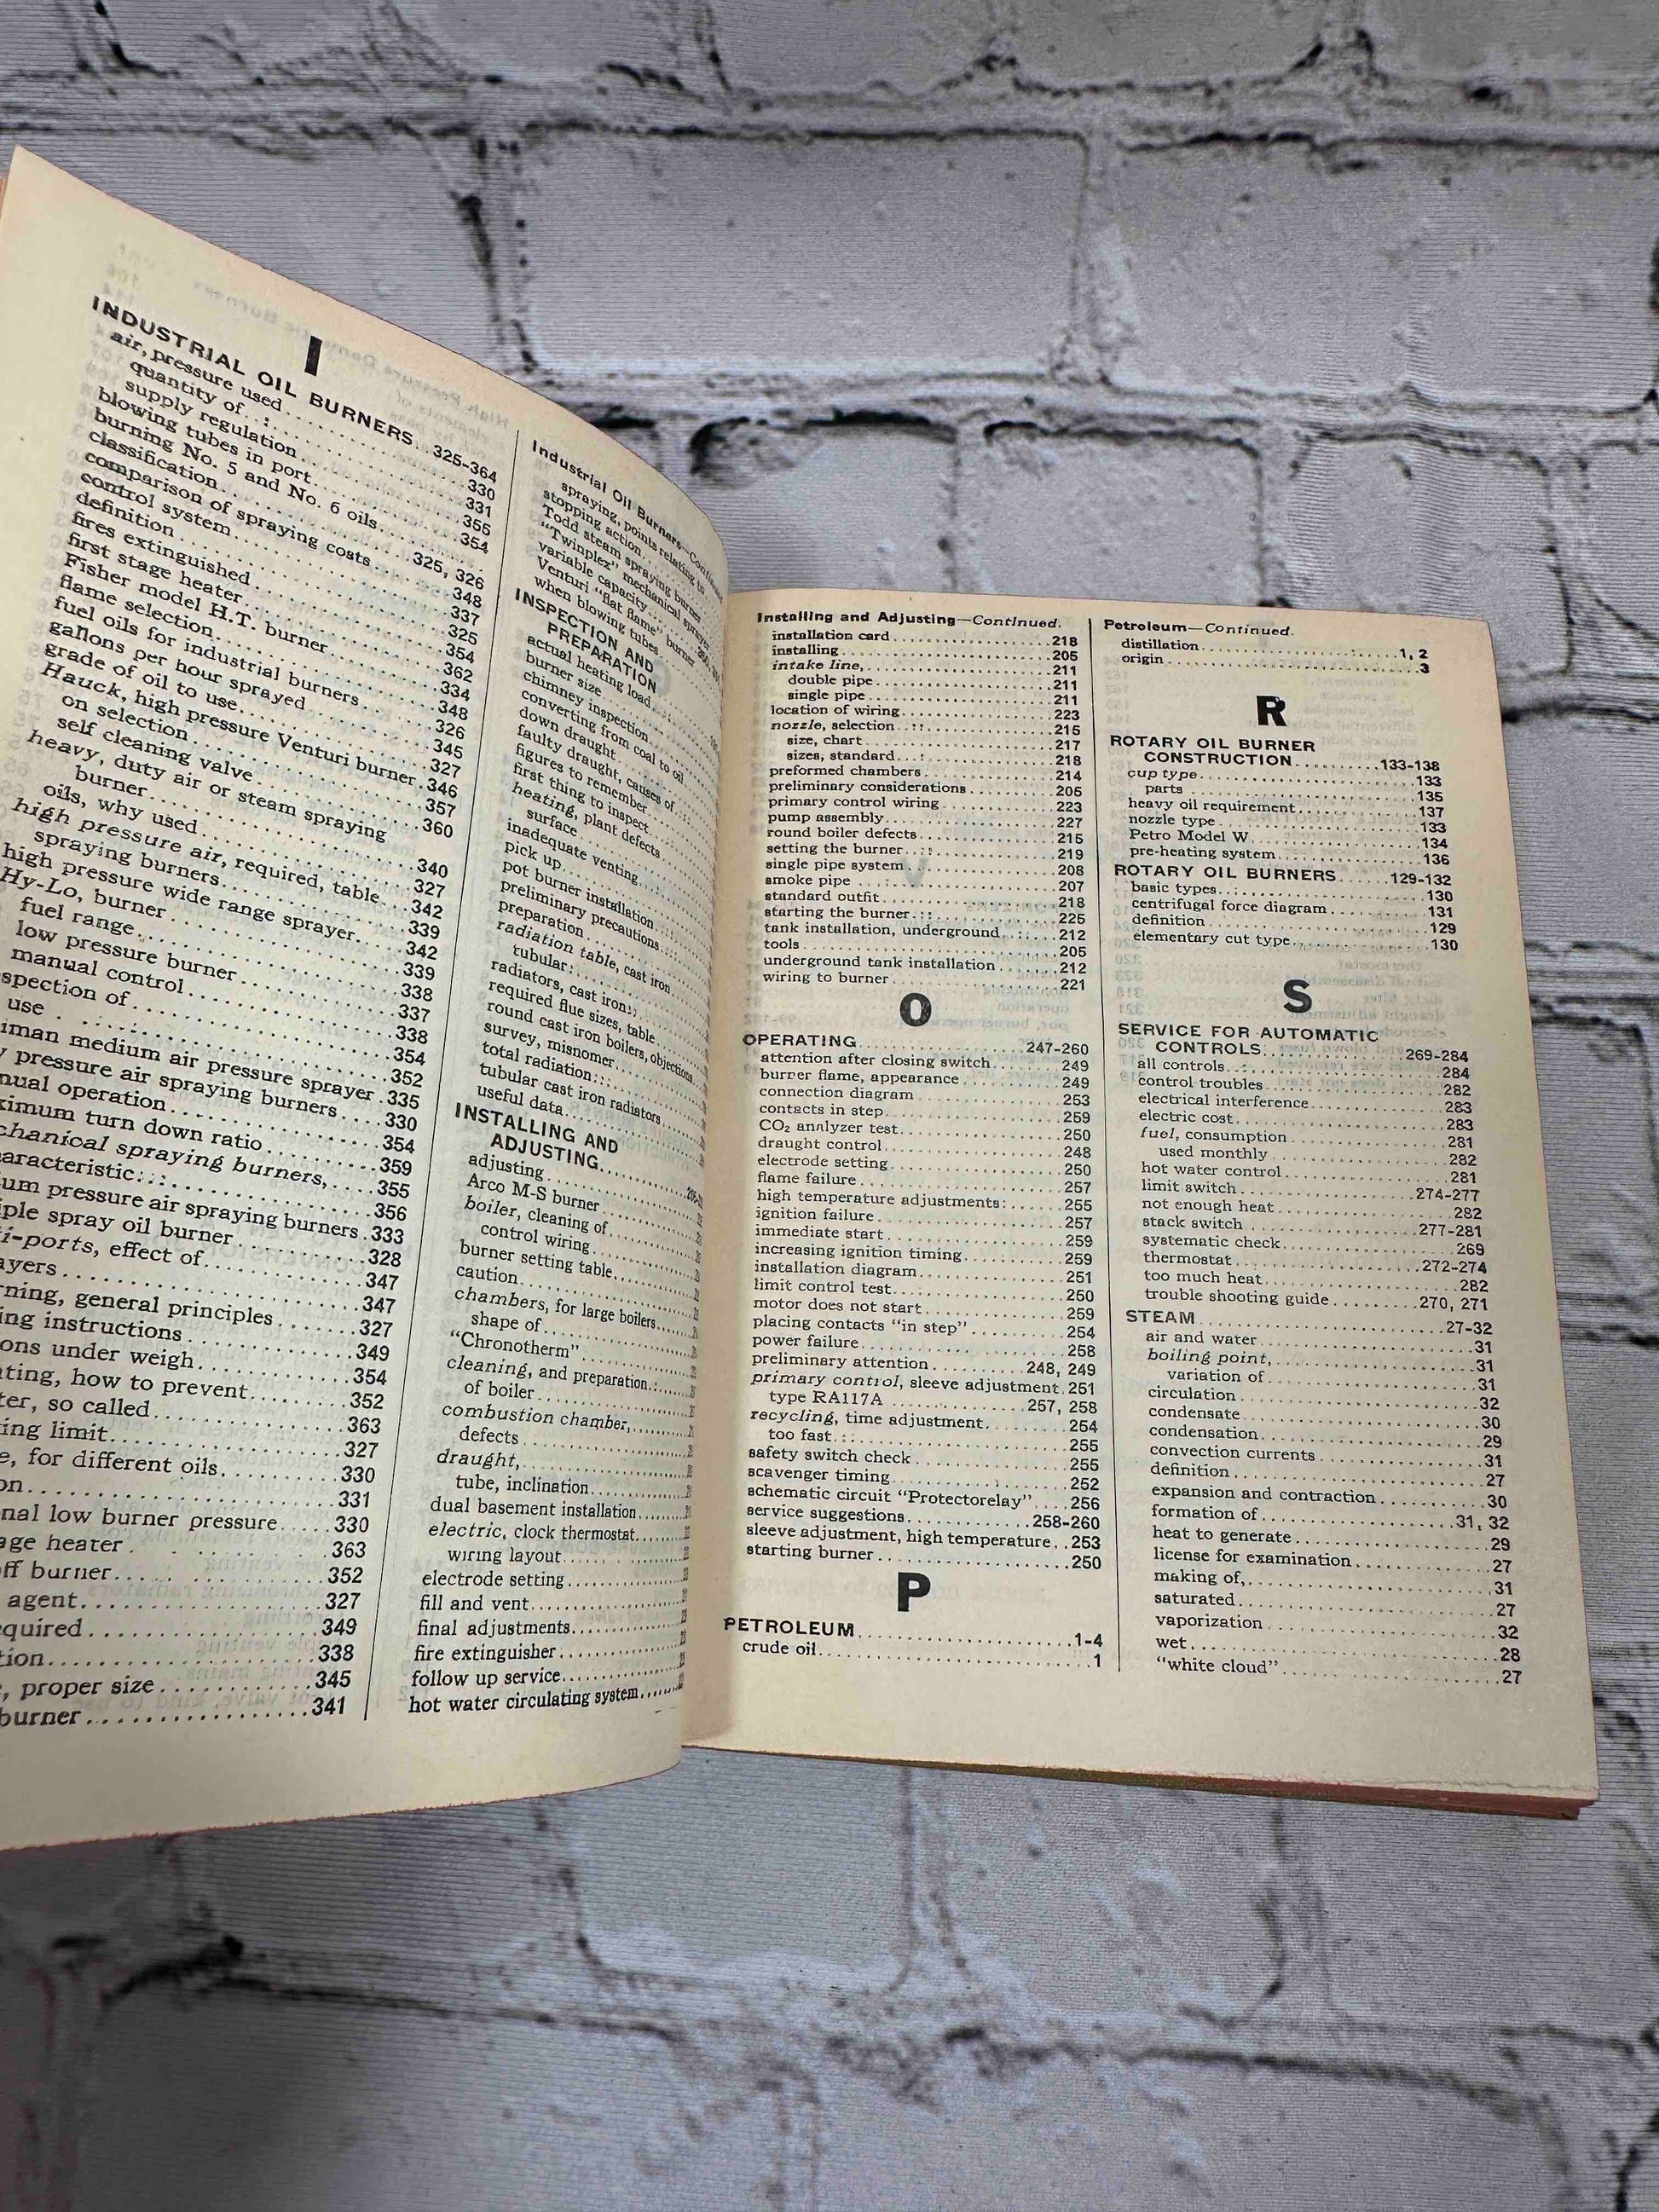 I
INDUSTRIAL OIL BURNERS...325-364
air, pressure used...330
quantity of...331
supply regulation...355
blowing tubes in port...354
burning No. 5 and No. 6 oils
classification...325, 326
comparison of spraying costs...348
control system...337
definition...325
fires extinguished...354
first stage heater...362
Fisher model H.T. burner...334
flame selection...348
fuel oils for industrial burners...326
gallons per hour sprayed...345
grade of oil to use...327
Hauck, high pressure Venturi burner.346
on selection...357
self cleaning valve...360
heavy, duty air or steam spraying
burner...340
oils, why used...327
high pressure air, required, table...342
spraying burners...339
high pressure wide range sprayer...342
Hy-Lo, burner...339
fuel range...338
low pressure burner...337
manual control...338
spection of...354
use...352
man medium air pressure sprayer.335
pressure air spraying burners...330
nual operation...354
ximum turn down ratio...359
chanical spraying burners,...355
aracteristic...356
um pressure air spraying burners.333
iple spray oil burner...328
i-ports, effect of...347
ayers...347
rning, general principles...327
ing instructions...349
ons under weigh...354
ating, how to prevent...352
ter, so called...363
ing limit...327
e, for different oils...330
on...331
nal low burner pressure...330
age heater...363
ff burner...352
agent...327
quired...349
tion...338
, proper size...345
burner...341
Industrial Oil Burners—Continued
spraying, points relating to
stopping action
Todd steam spraying burner
"Twinplex" mechanical sprayer
variable capacity
Venturi "flat flame" burner
when blowing tubes
INSPECTION AND
PREPARATION
actual heating load
burner size
chimney inspection
converting from coal to oil
down draught
faulty draught, causes of
figures to remember
first thing to inspect
heating, plant defects
surface
inadequate venting
pick up
pot burner installation
preliminary precautions
preparation
radiation table, cast iron
tubular
radiators, cast iron
required flue sizes, table
round cast iron boilers, objections
survey, misnomer
total radiation
tubular cast iron radiators
useful data
INSTALLING AND
ADJUSTING
adjusting
Arco M-S burner
boiler, cleaning of
control wiring
burner setting table
caution
chambers, for large boilers
shape of
"Chronotherm"
cleaning, and preparation
of boiler
combustion chamber,
defects
draught,
tube, inclination
dual basement installation
electric, clock thermostat
wiring layout
electrode setting
fill and vent
final adjustments
fire extinguisher
follow up service
hot water circulating system
Installing and Adjusting—Continued.
installation card...218
installing...205
intake line,...211
double pipe...211
single pipe...211
location of wiring...223
nozzle, selection...215
size, chart...217
sizes, standard...218
preformed chambers...214
preliminary considerations...205
primary control wiring...223
pump assembly...227
round boiler defects...215
setting the burner...219
single pipe system...208
smoke pipe...207
standard outfit...218
starting the burner...225
tank installation, underground...212
tools...205
underground tank installation...212
wiring to burner...221
O
OPERATING...247-260
attention after closing switch...249
burner flame, appearance...249
connection diagram...253
contacts in step...259
CO₂ analyzer test...250
draught control...248
electrode setting...250
flame failure...257
high temperature adjustments...255
ignition failure...257
immediate start...259
increasing ignition timing...259
installation diagram...251
limit control test...250
motor does not start...259
placing contacts "in step"...254
power failure...258
preliminary attention...248, 249
primary control, sleeve adjustment.251
type RA117A...257, 258
recycling, time adjustment...254
too fast...255
safety switch check...255
scavenger timing...252
schematic circuit "Protectorelay"...256
service suggestions...258-260
sleeve adjustment, high temperature..253
starting burner...250
P
PETROLEUM...1-4
crude oil...1
Petroleum—Continued.
distillation...1, 2
origin...3
R
ROTARY OIL BURNER
CONSTRUCTION...133-138
cup type...133
parts...135
heavy oil requirement...137
nozzle type...133
Petro Model W...134
pre-heating system...136
ROTARY OIL BURNERS...129-132
basic types...130
centrifugal force diagram...131
definition...129
elementary cut type...130
S
SERVICE FOR AUTOMATIC
CONTROLS...269-284
all controls...284
control troubles...282
electrical interference...283
electric cost...283
fuel, consumption...281
used monthly...282
hot water control...281
limit switch...274-277
not enough heat...282
stack switch...277-281
systematic check...269
thermostat...272-274
too much heat...282
trouble shooting guide...270, 271
STEAM...27-32
air and water...31
boiling point,...31
variation of...31
circulation...32
condensate...30
condensation...29
convection currents...31
definition...27
expansion and contraction...30
formation of...31, 32
heat to generate...29
license for examination...27
making of,...31
saturated...27
vaporization...32
wet...28
"white cloud"...27